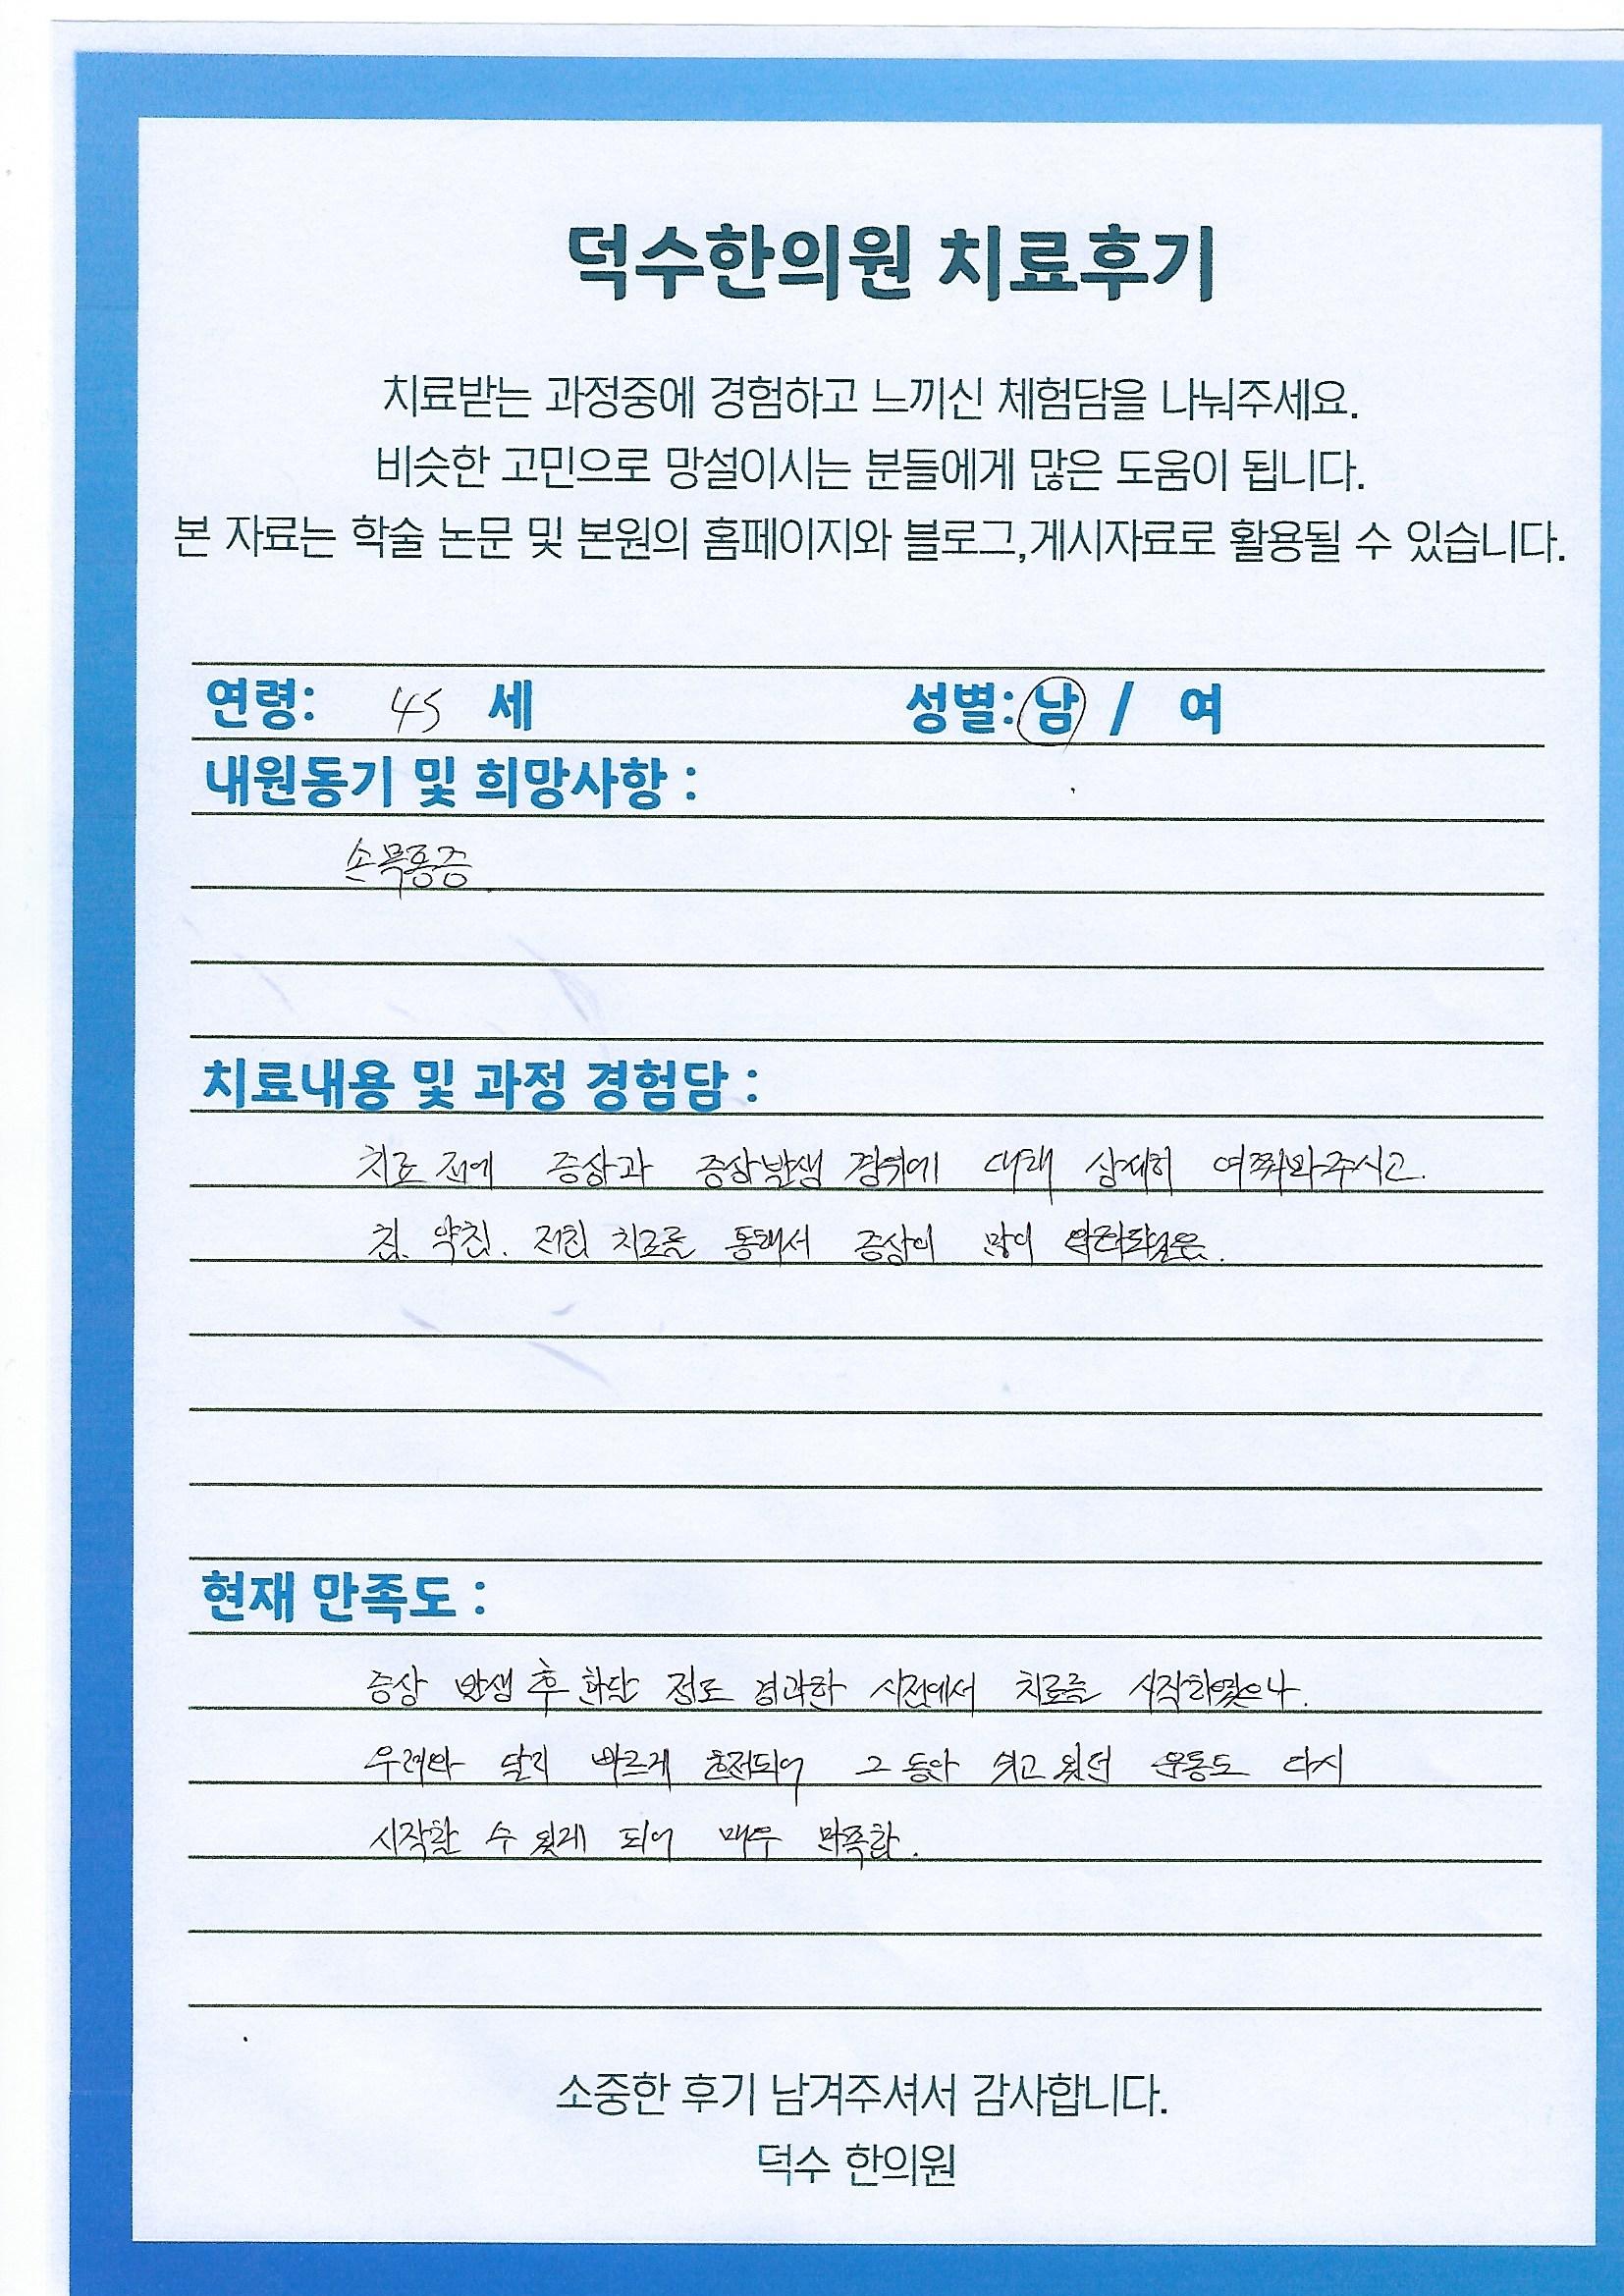 덕수한의원 치료후기
치료받는 과정중에 경험하고 느끼신 체험담을 나눠주세요.
비슷한 고민으로 망설이시는 분들에게 많은 도움이 됩니다.
본 자료는 학술 논문 및 본원의 홈페이지와 블로그,게시자료로 활용될 수 있습니다.
연령: 45 세 성별: 남 / 여
내원동기 및 희망사항 :
손목통증.
치료내용 및 과정 경험담 :
치료 전에 증상과 증상발생 경위에 대해 상세히 여쭤봐주시고.
침. 약침. 전침 치료를 통해서 증상이 많이 완화되었음.
현재 만족도 :
증상 발생 후 한달 정도 경과한 시점에서 치료를 시작하였으나.
우려와 달리 빠르게 호전되어 그 동안 쉬고 있던 운동도 다시
시작할 수 있게 되어 매우 만족함.
소중한 후기 남겨주셔서 감사합니다.
덕수 한의원